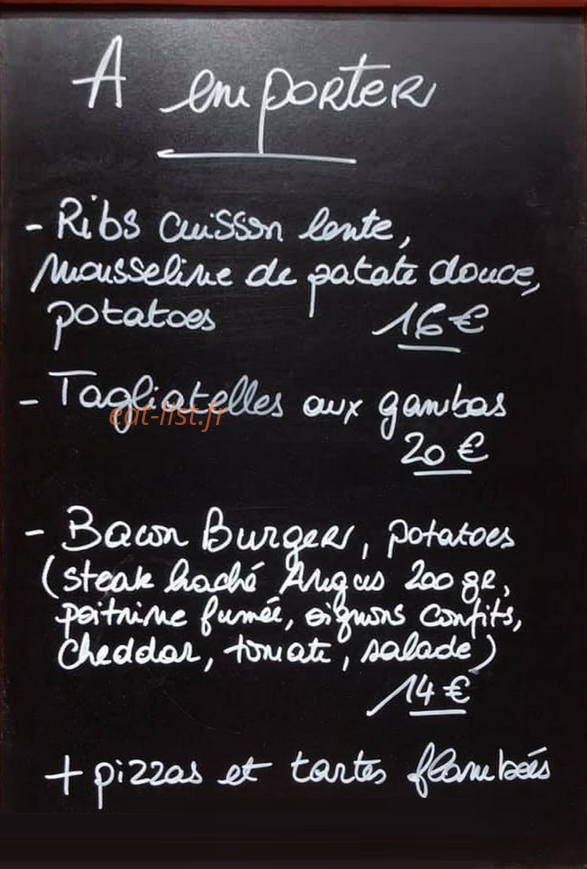 A emporter
- Ribs cuisson lente,
mousseline de patate douce,
potatoes 16€
- Tagliatelles aux gambas
eat-list.fr
20€
- Bacon Burger, potatoes
(steak haché Angus 200 gr,
poitrine fumée, oignons confits,
cheddar, tomate, salade)
14€
+ pizzas et tartes flambées